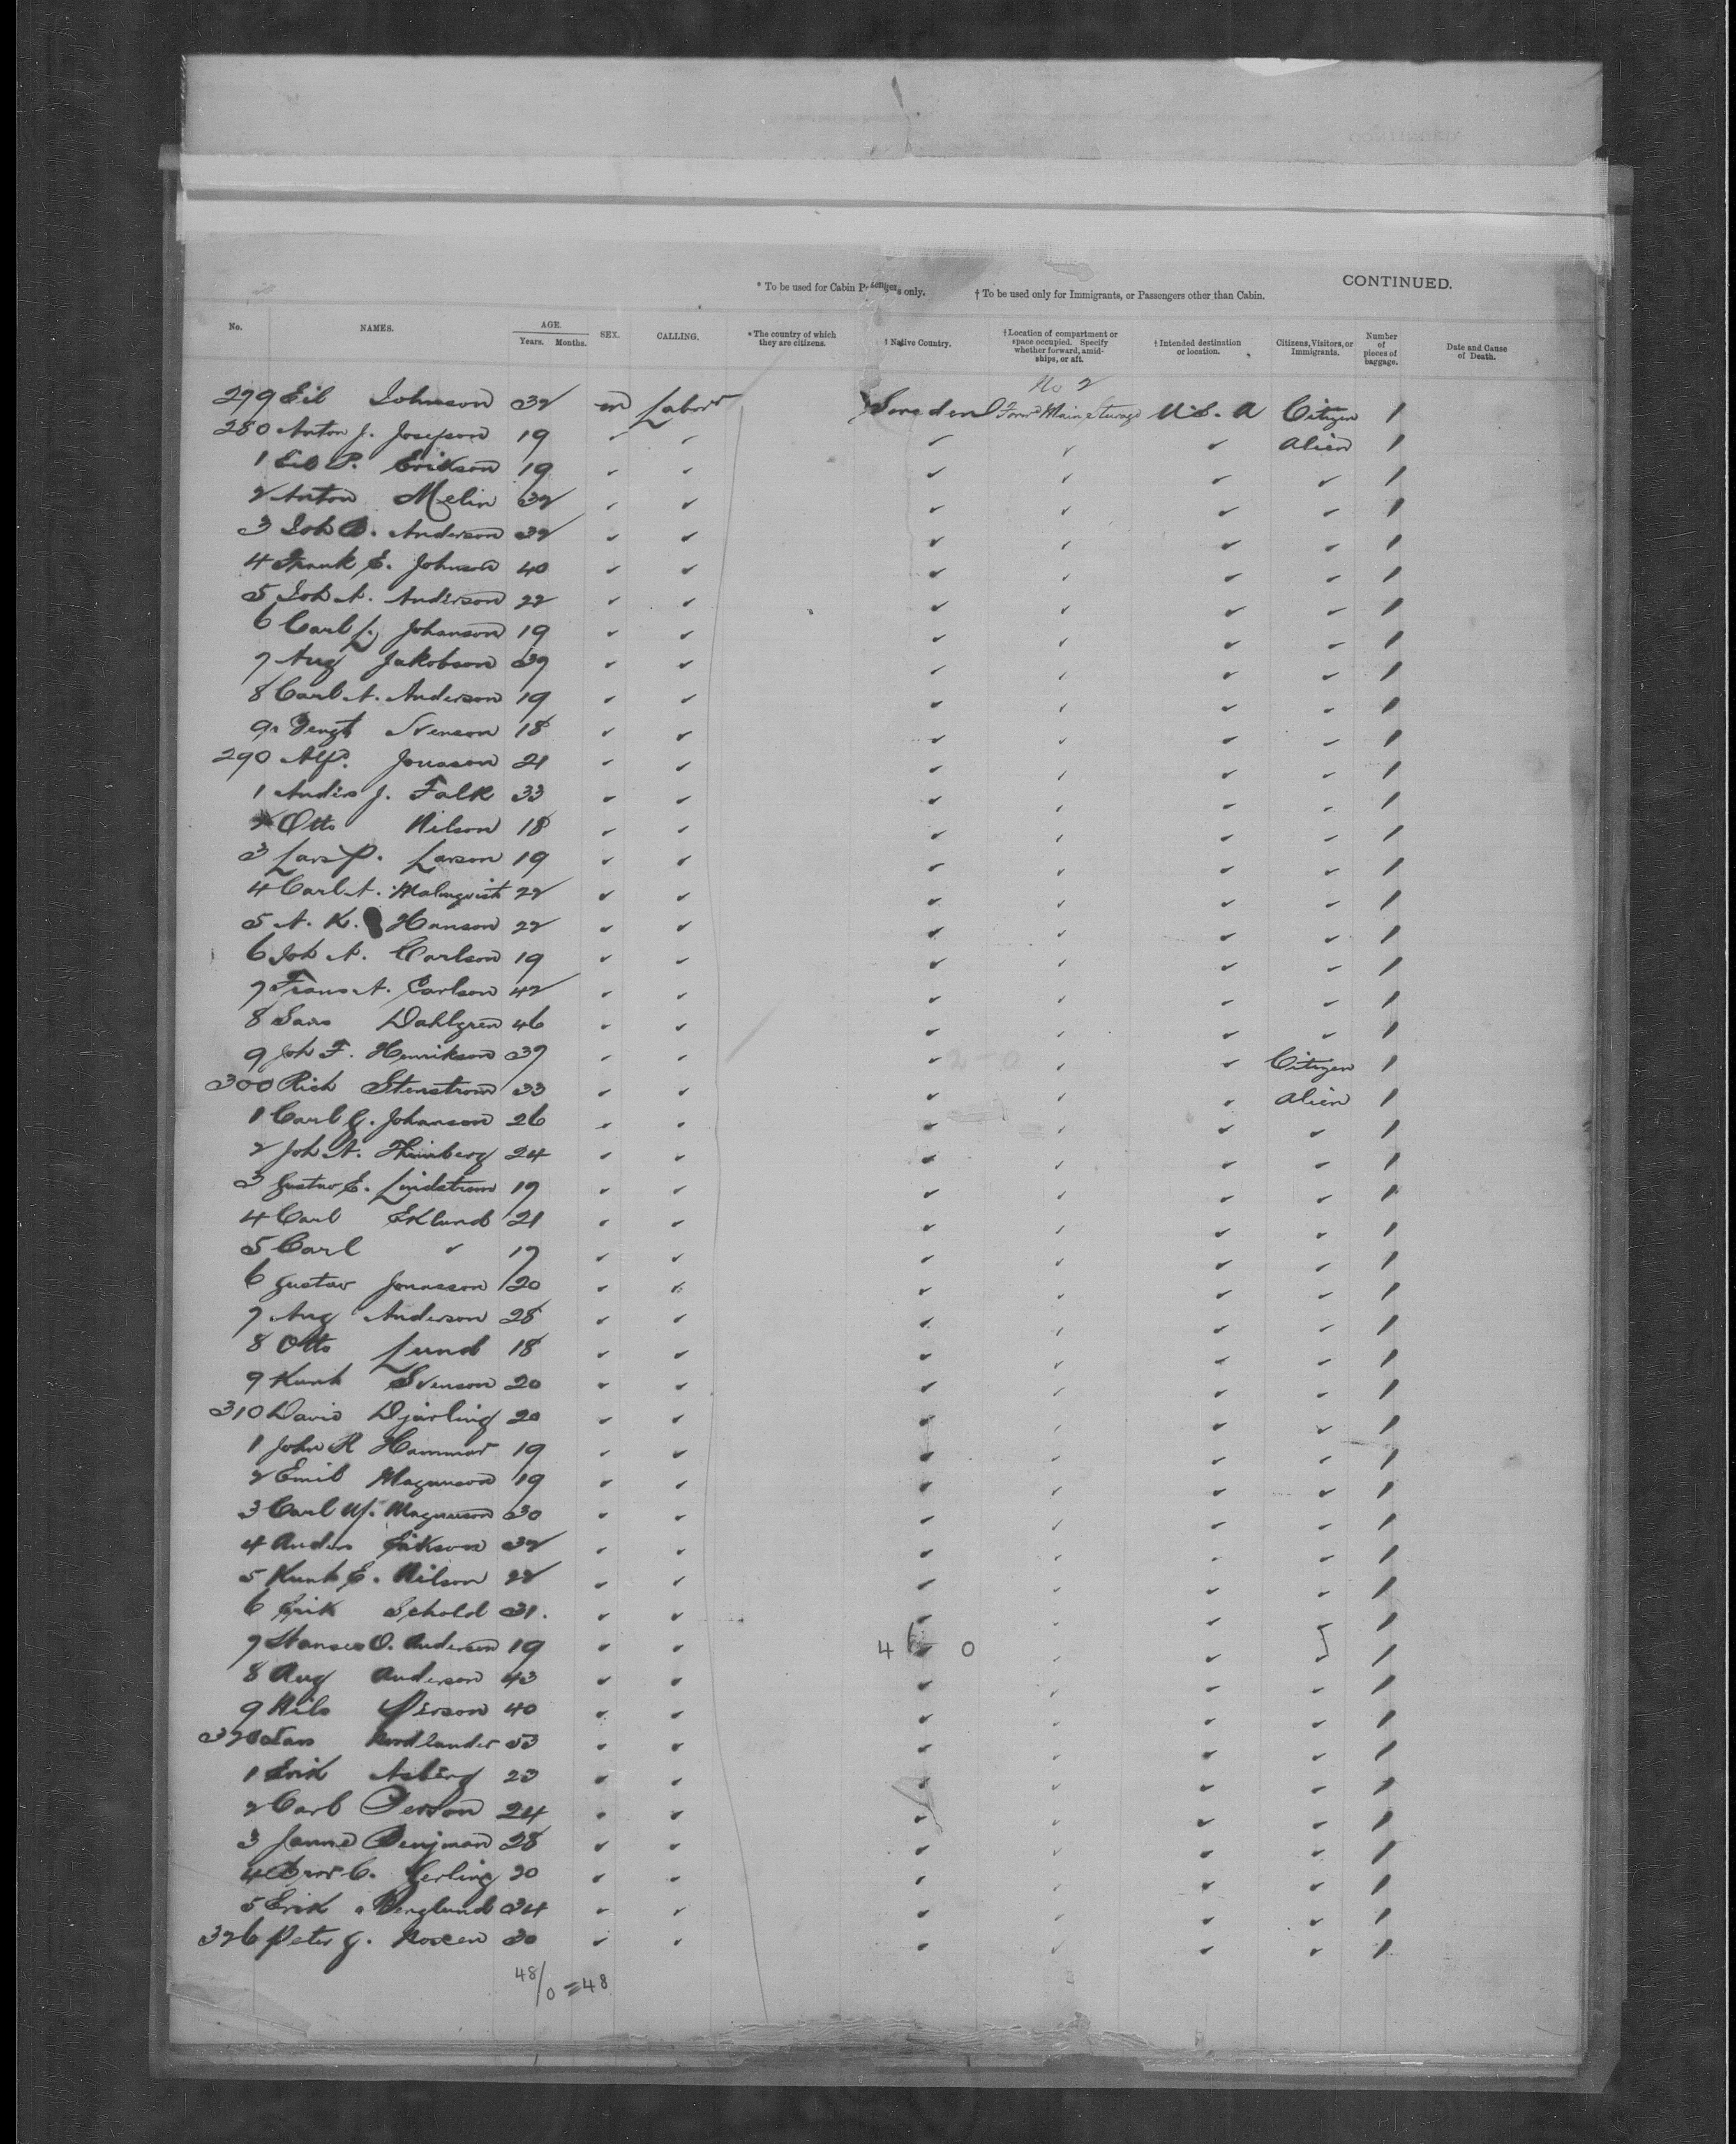 CONTINUED.
* To be used for Cabin Passengers only. † To be used only for Immigrants, or Passengers other than Cabin.
No. NAMES. AGE. Years. Months. SEX. CALLING. * The country of which they are citizens. † Native Country. † Location of compartment or space occupied. Specify whether forward, amidships, or aft. † Intended destination or location. Citizens, Visitors, or Immigrants. Number of pieces of baggage. Date and Cause of Death.
No 2
279 Johnson 32 m Labor Sweden Forwd Main Steerage U.S.A Citizen 1
280 Anton J. Josefson 19 ✓ ✓ ✓ ✓ ✓ Alien 1
1 P. Erikson 19 ✓ ✓ ✓ ✓ ✓ ✓ 1
2 Anton Melin 32 ✓ ✓ ✓ ✓ ✓ ✓ 1
3 Joh Anderson 32 ✓ ✓ ✓ ✓ ✓ ✓ 1
4 Frank E. Johnson 40 ✓ ✓ ✓ ✓ ✓ ✓ 1
5 Joh A. Anderson 22 ✓ ✓ ✓ ✓ ✓ ✓ 1
6 Carl L. Johanson 19 ✓ ✓ ✓ ✓ ✓ ✓ 1
7 Aug Jakobson 37 ✓ ✓ ✓ ✓ ✓ ✓ 1
8 Carl A. Anderson 19 ✓ ✓ ✓ ✓ ✓ ✓ 1
9 Bengt Svenson 18 ✓ ✓ ✓ ✓ ✓ ✓ 1
290 Alfd. Jonasson 21 ✓ ✓ ✓ ✓ ✓ ✓ 1
1 Anders J. Falk 33 ✓ ✓ ✓ ✓ ✓ ✓ 1
2 Otto Nilson 18 ✓ ✓ ✓ ✓ ✓ ✓ 1
3 Lars P. Larson 19 ✓ ✓ ✓ ✓ ✓ ✓ 1
4 Carl A. Malmqvist 22 ✓ ✓ ✓ ✓ ✓ ✓ 1
5 A. K. Hanson 22 ✓ ✓ ✓ ✓ ✓ ✓ 1
6 Joh A. Carlson 19 ✓ ✓ ✓ ✓ ✓ ✓ 1
7 Frans A. Carlson 42 ✓ ✓ ✓ ✓ ✓ ✓ 1
8 Dahlgren 46 ✓ ✓ ✓ ✓ ✓ ✓ 1
9 Joh F. Henrikson 37 ✓ ✓ ✓ 2-0 ✓ ✓ Citizen 1
300 Rich Stenstrom 33 ✓ ✓ ✓ ✓ ✓ Alien 1
1 Carl G. Johanson 26 ✓ ✓ ✓ ✓ ✓ ✓ 1
2 Joh A. 24 ✓ ✓ ✓ ✓ ✓ ✓ 1
3 Gustav E. Lindstrom 17 ✓ ✓ ✓ ✓ ✓ ✓ 1
4 Carl Eklund 21 ✓ ✓ ✓ ✓ ✓ ✓ 1
5 Carl ✓ 17 ✓ ✓ ✓ ✓ ✓ ✓ 1
6 Gustav Jonasson 20 ✓ ✓ ✓ ✓ ✓ ✓ 1
7 Aug Anderson 28 ✓ ✓ ✓ ✓ ✓ ✓ 1
8 Otto Lund 18 ✓ ✓ ✓ ✓ ✓ ✓ 1
9 Knut Svenson 20 ✓ ✓ ✓ ✓ ✓ ✓ 1
310 David Djarling 20 ✓ ✓ ✓ ✓ ✓ ✓ 1
1 John R Hammar 19 ✓ ✓ ✓ ✓ ✓ ✓ 1
2 Emil Magnuson 19 ✓ ✓ ✓ ✓ ✓ ✓ 1
3 Carl W. Magnuson 30 ✓ ✓ ✓ ✓ ✓ ✓ 1
4 Anders Erikson 32 ✓ ✓ ✓ ✓ ✓ ✓ 1
5 Knut E. Nilson 22 ✓ ✓ ✓ ✓ ✓ ✓ 1
6 Erik Schold 31. ✓ ✓ ✓ ✓ ✓ 1
7 O. Anderson 19 ✓ ✓ 46 ✓ 0 ✓ ✓ ✓ 1
8 Aug Anderson 43 ✓ ✓ ✓ ✓ ✓ ✓ 1
9 Nils Person 40 ✓ ✓ ✓ ✓ ✓ ✓ 1
320 Lars Nordlander 53 ✓ ✓ ✓ ✓ ✓ ✓ 1
1 Erik Asberg 23 ✓ ✓ ✓ ✓ ✓ ✓ 1
2 Carl Person 24 ✓ ✓ ✓ ✓ ✓ ✓ 1
3 Janne Benjman 28 ✓ ✓ ✓ ✓ ✓ ✓ 1
4 C. Gerling 20 ✓ ✓ ✓ ✓ ✓ ✓ 1
5 Erik Berglund 34 ✓ ✓ ✓ ✓ ✓ ✓ 1
326 Peter G. Noreen 30 ✓ ✓ ✓ ✓ ✓ ✓ 1
48/0 = 48